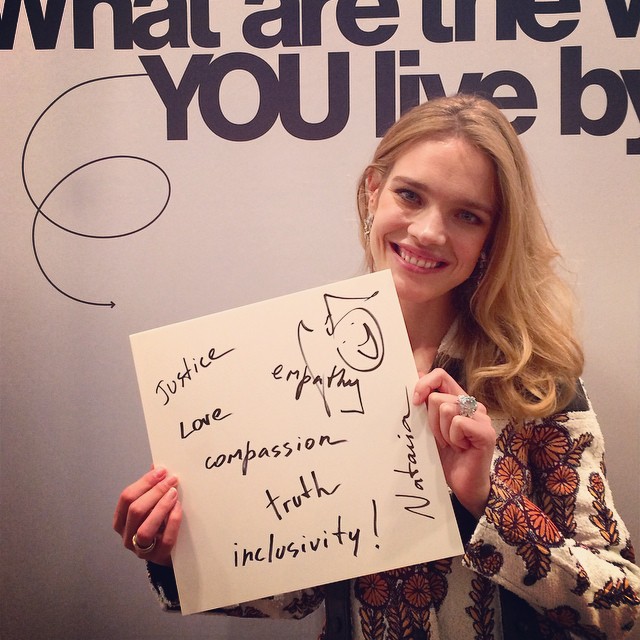 What are the v
YOU live by
Justice
empathy
Love
compassion
truth
inclusivity!
Natalia